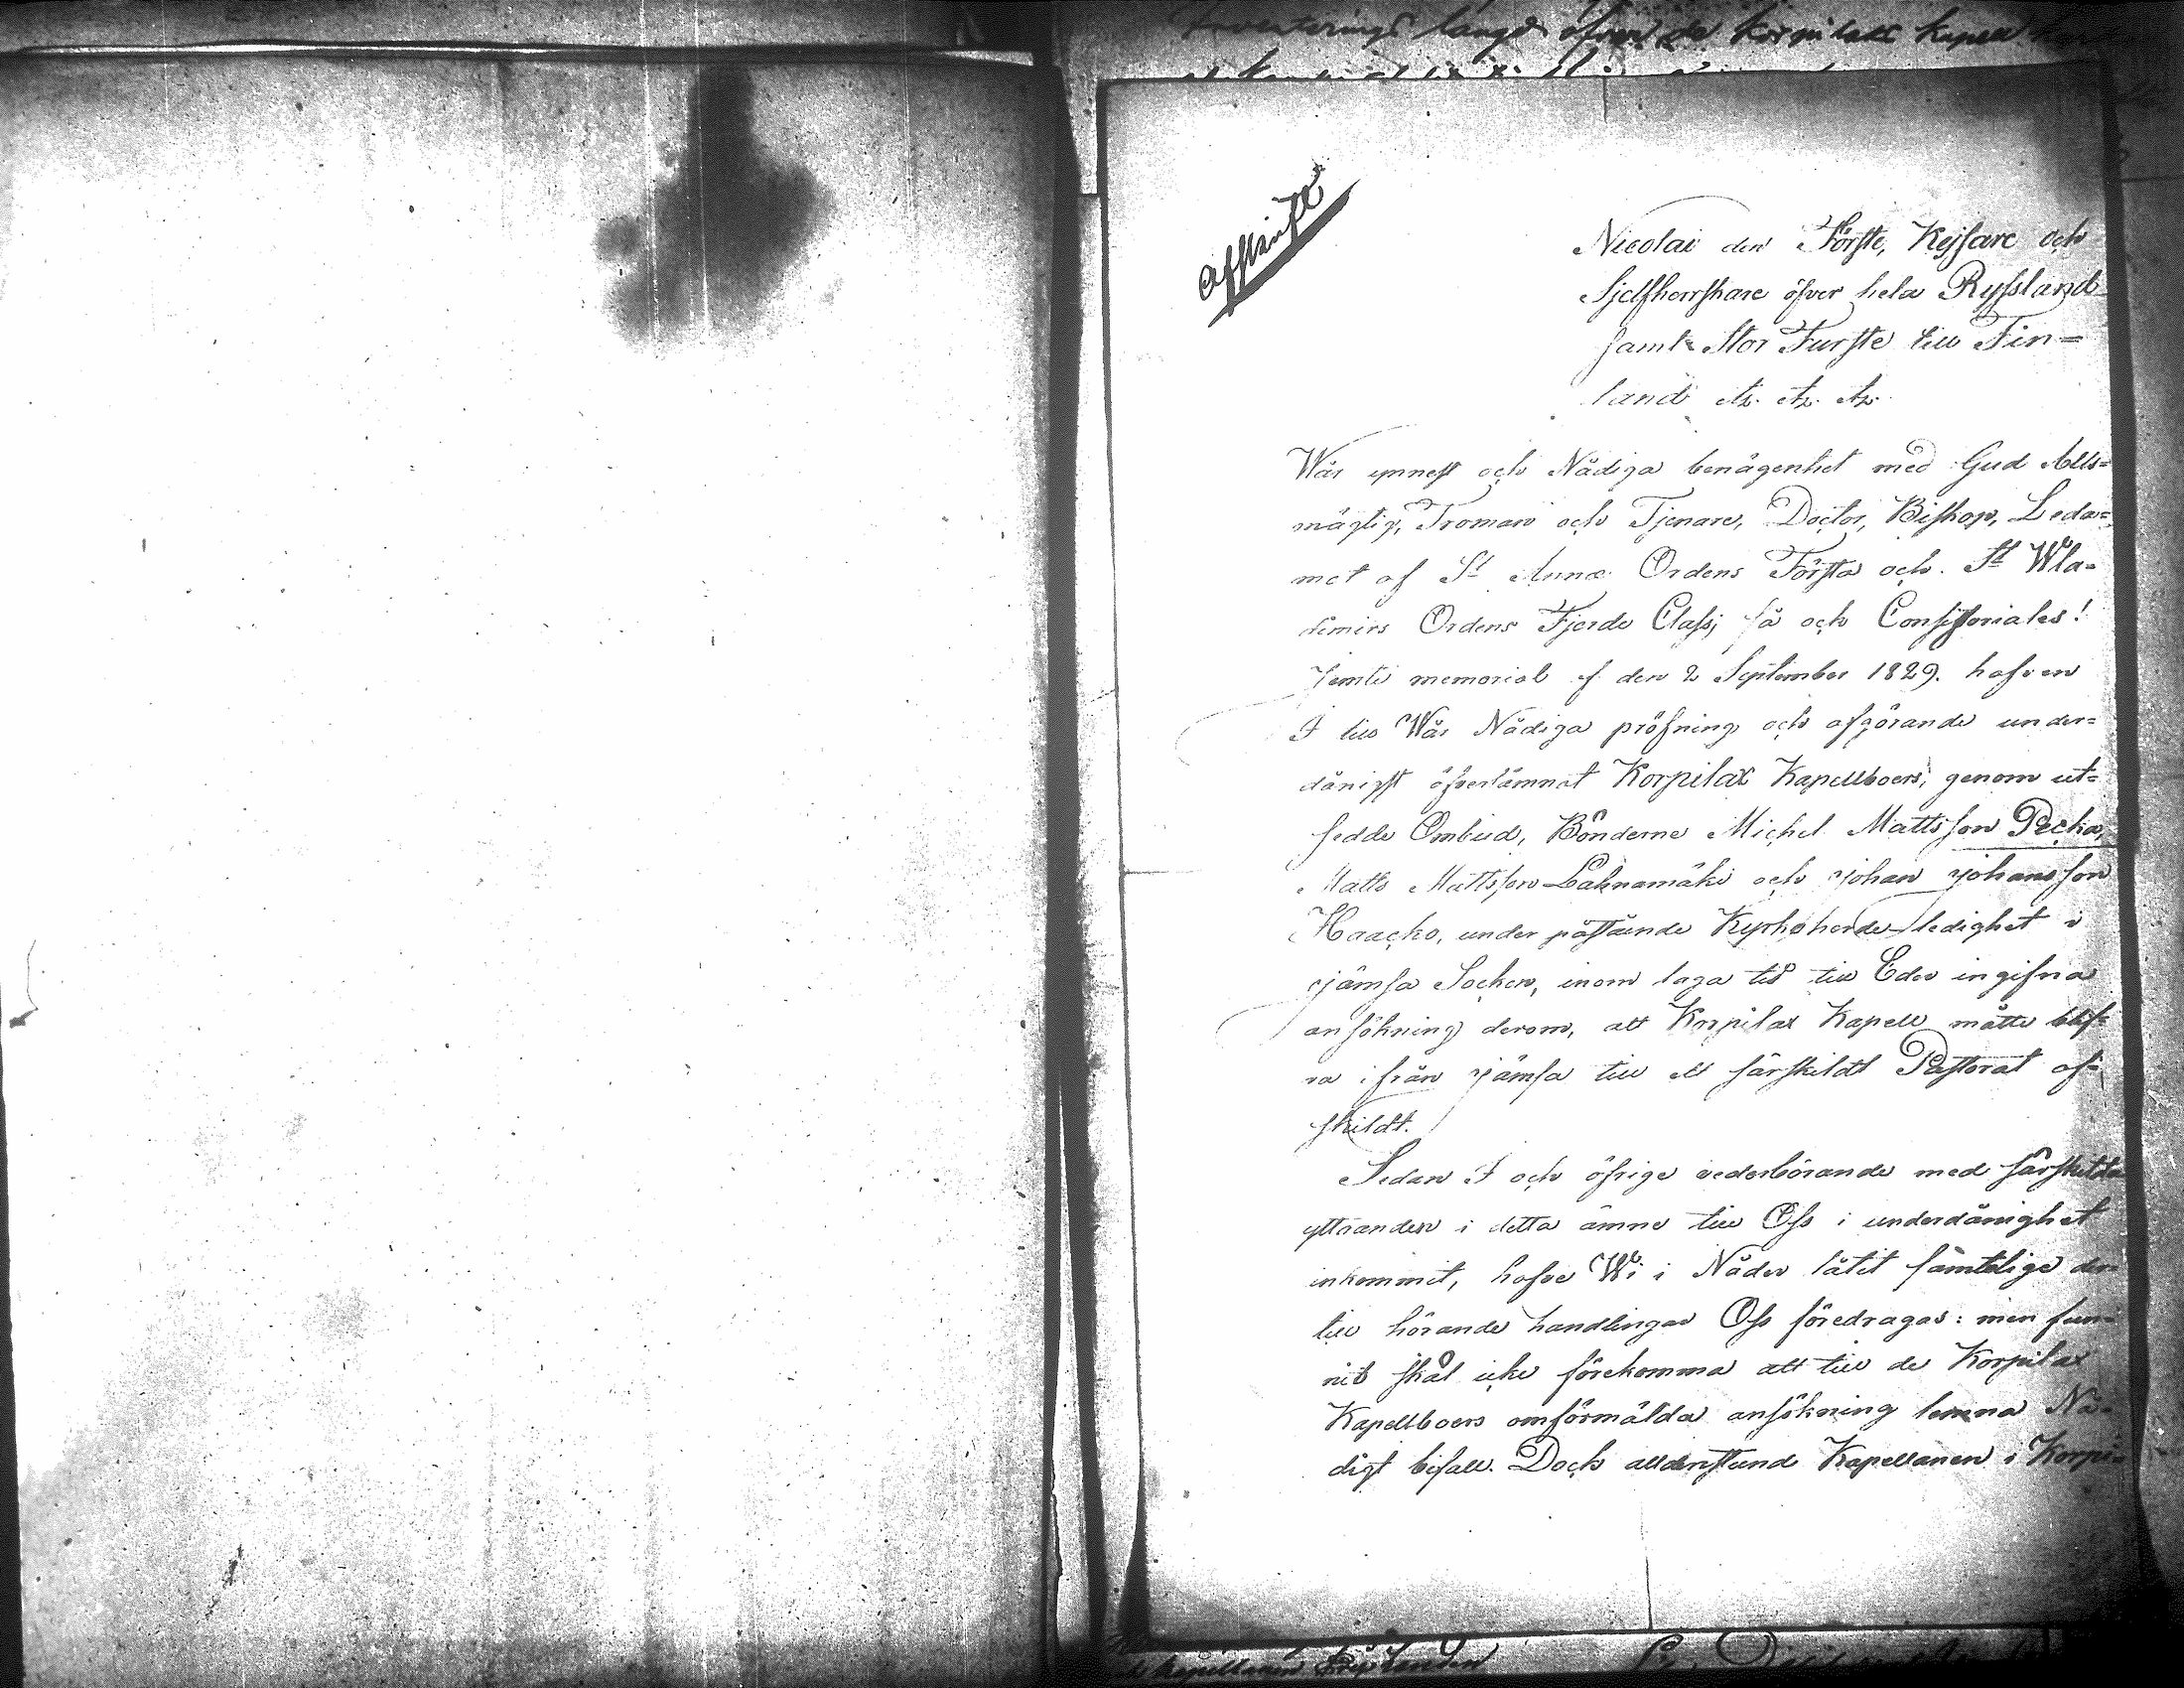 Inventerings längd öfver de Korpilax Kapell
Affskrift
Nicolai den Förste, Kejsare och
Sjelfherrskare öfver hela Ryssland
samt Stor Furste till Fin=
land etz. etz. etz.
Wår ynnest och Nådiga benägenhet med Gud Alls=
mägtig, Troman och Tjenare, Doctor, Biskop, Leda=
mot af St Annæ Ordens Första och St Wla=
dimirs Ordens Fjerde Class; så och Consistoriales!
Jemte memorial af den 2 September 1829. hafven
I till Wår Nådiga pröfning och afgörande under=
dånigst öfverlämnat Korpilax Kapellboers, genom ut=
sedde Ombud, Bönderne Michel Mattsson Pecka,
Matts Mattsson Lahnamäki och Johan Johansson
Haacko, under påstående Kyrkoherde ledighet i
Jämsä Socken, inom laga tid till Eder ingifna
ansökning derom, att Korpilax Kapell måtte blif=
va ifrån Jämsä till ett särskildt Pastorat af=
skildt.
Sedan I och öfrige vederbörande med särskilda
yttranden i detta ämne till Oss i underdånighet
inkommit, hafve Wi i Nåder låtit samtelige der
till hörande handlingar Oss föredragas: men fun=
nit skäl icke förekomma att till de Korpilax
Kapellboers omförmälda ansökning lemna Nå=
digt bifall. Dock alldenstund Kapellanen i Korpi=